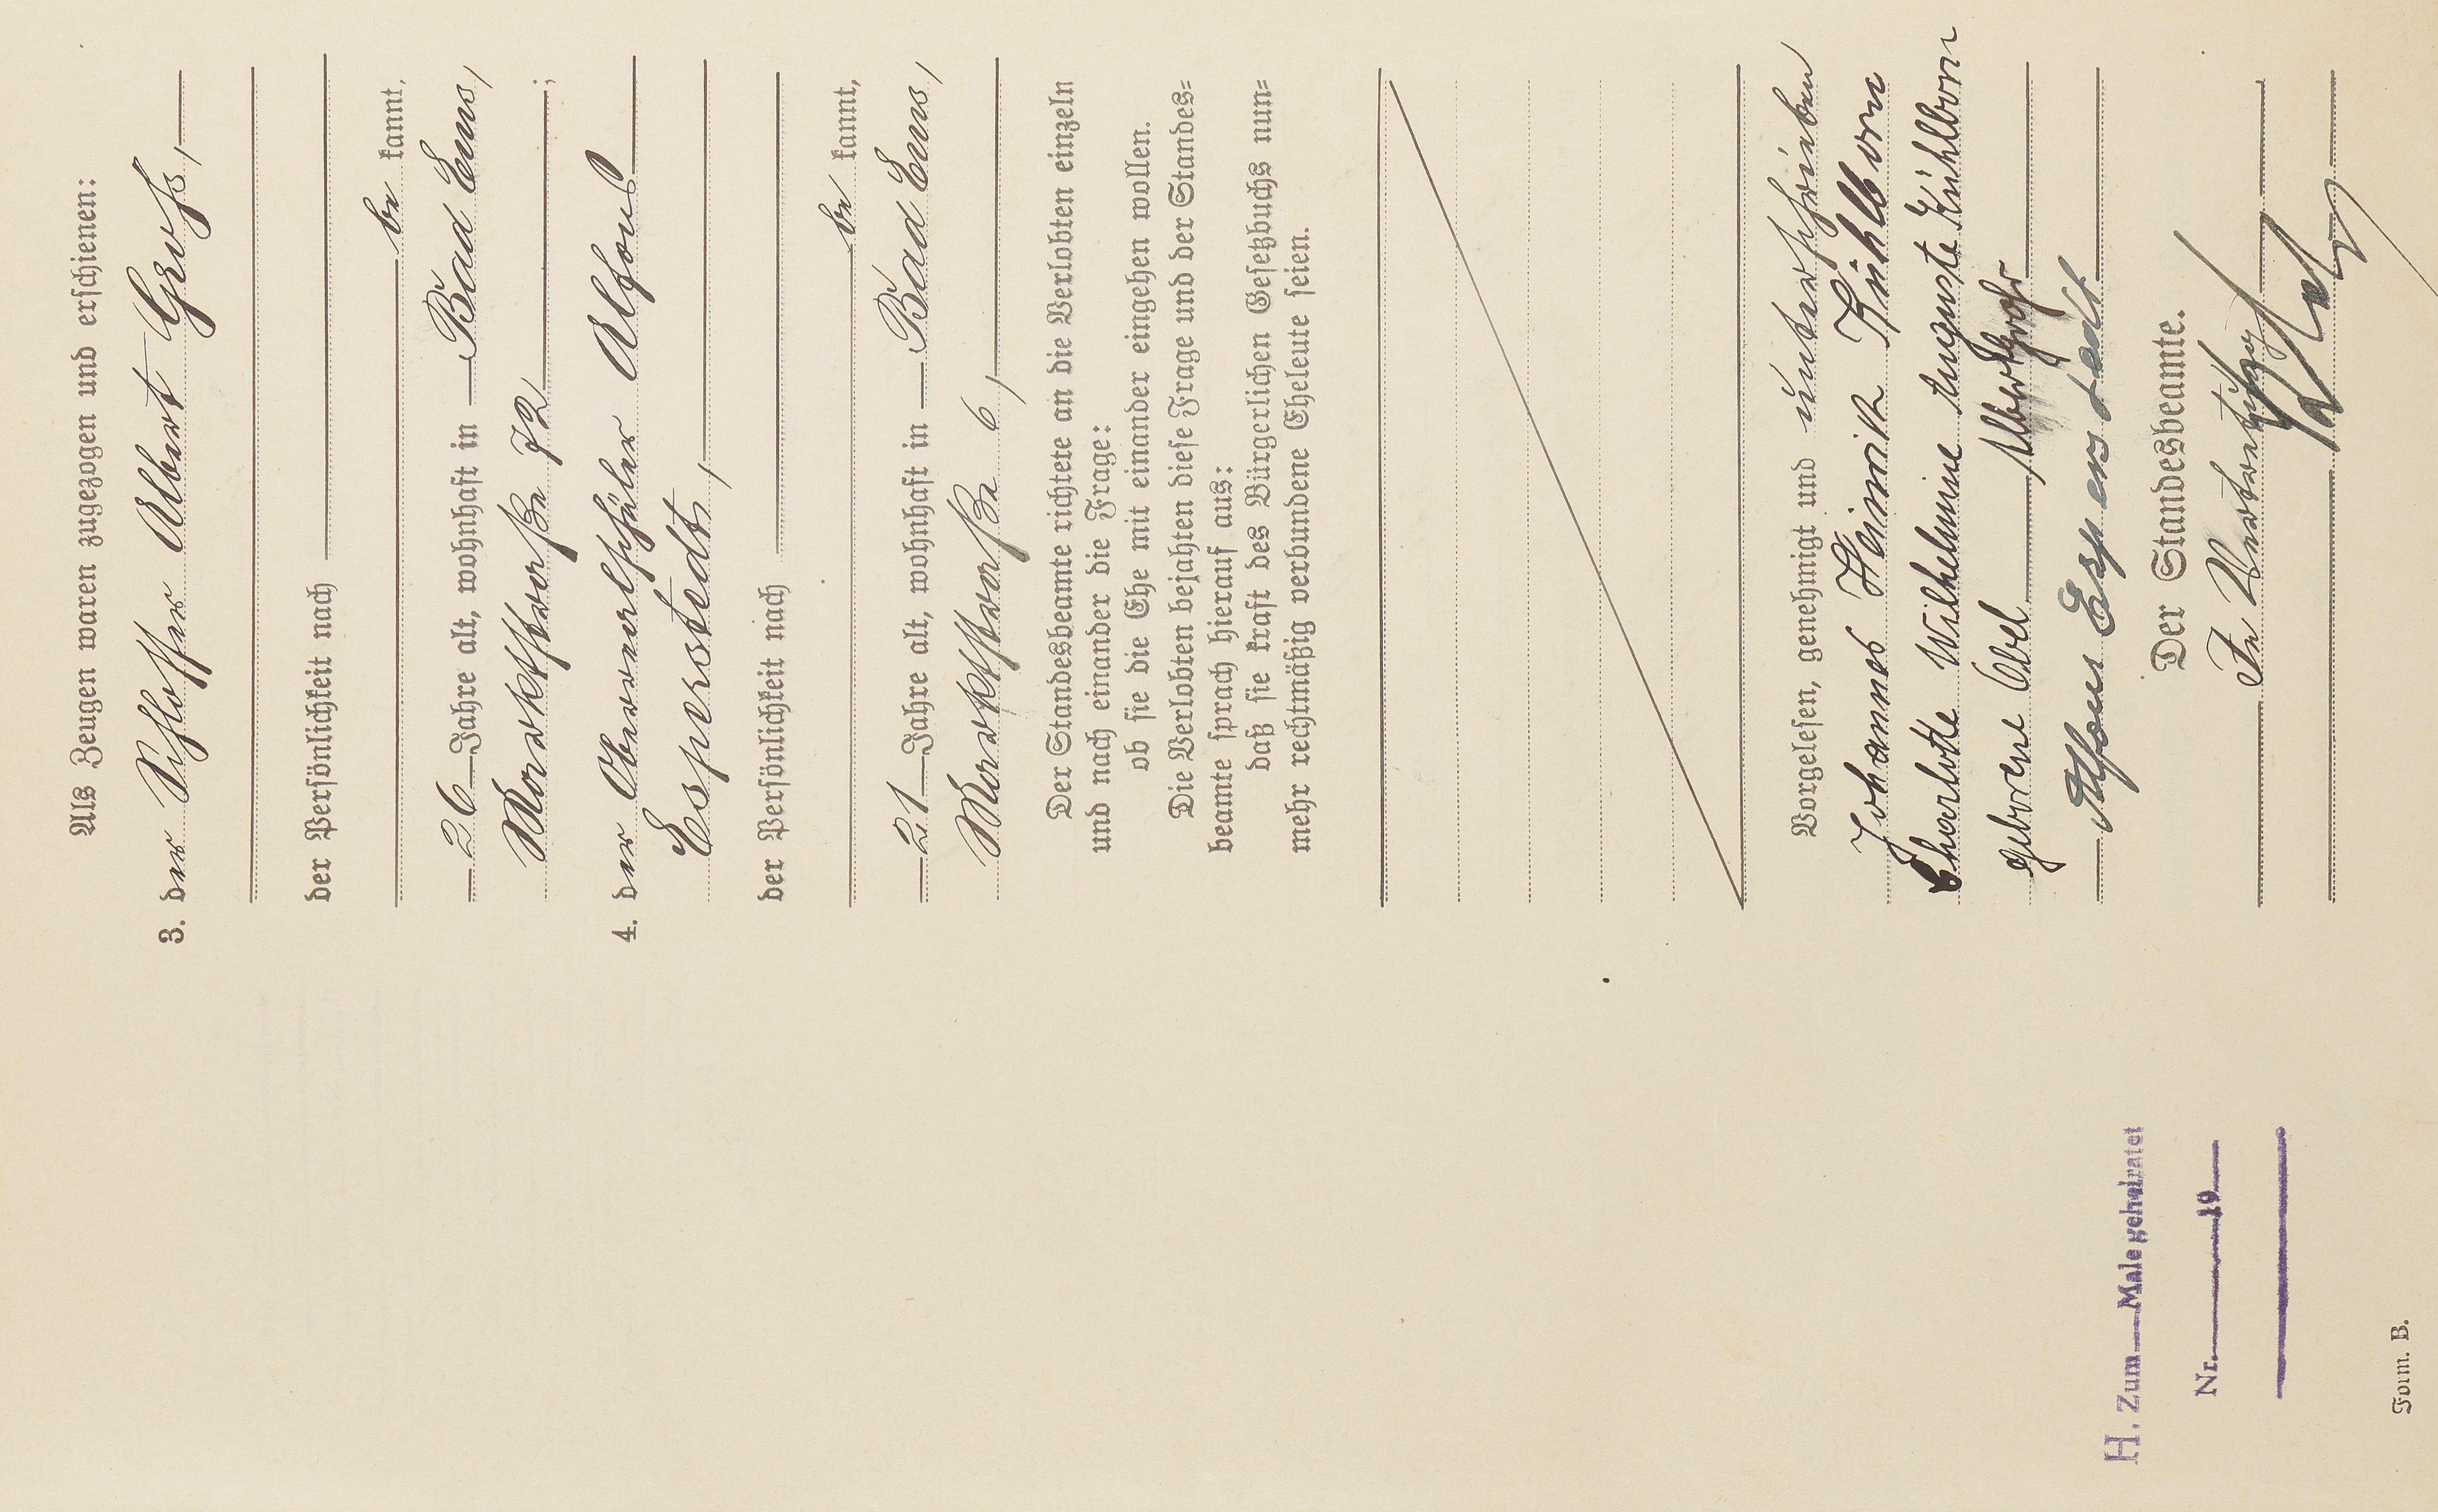 Als Zeugen waren zugezogen und erschienen:
3. der Schlosser Albert Groß,
der Persönlichkeit nach
be kannt,
26 Jahre alt, wohnhaft in Bad Ems,
Marktstraße 72;
4. der Oberrealschüler Alfons
Esperstedt,
der Persönlichkeit nach
be kannt,
21 Jahre alt, wohnhaft in Bad Ems,
Marktstraße 6,
Der Standesbeamte richtete an die Verlobten einzeln
und nach einander die Frage:
ob sie die Ehe mit einander eingehen wollen.
Die Verlobten bejahten diese Frage und der Standes=
beamte sprach hierauf aus:
daß sie kraft des Bürgerlichen Gesetzbuchs nun=
mehr rechtmäßig verbundene Eheleute seien.
Vorgelesen, genehmigt und unterschrieben
Johannes Heinrich Kühlborn
Charlotte Wilhelmine Auguste Kühlborn
geborene Abel Albert Groß
Alfons Esperstedt
Der Standesbeamte.
In Vertretung
H. Zum Male geheiratet
Nr. 19
Form. B.